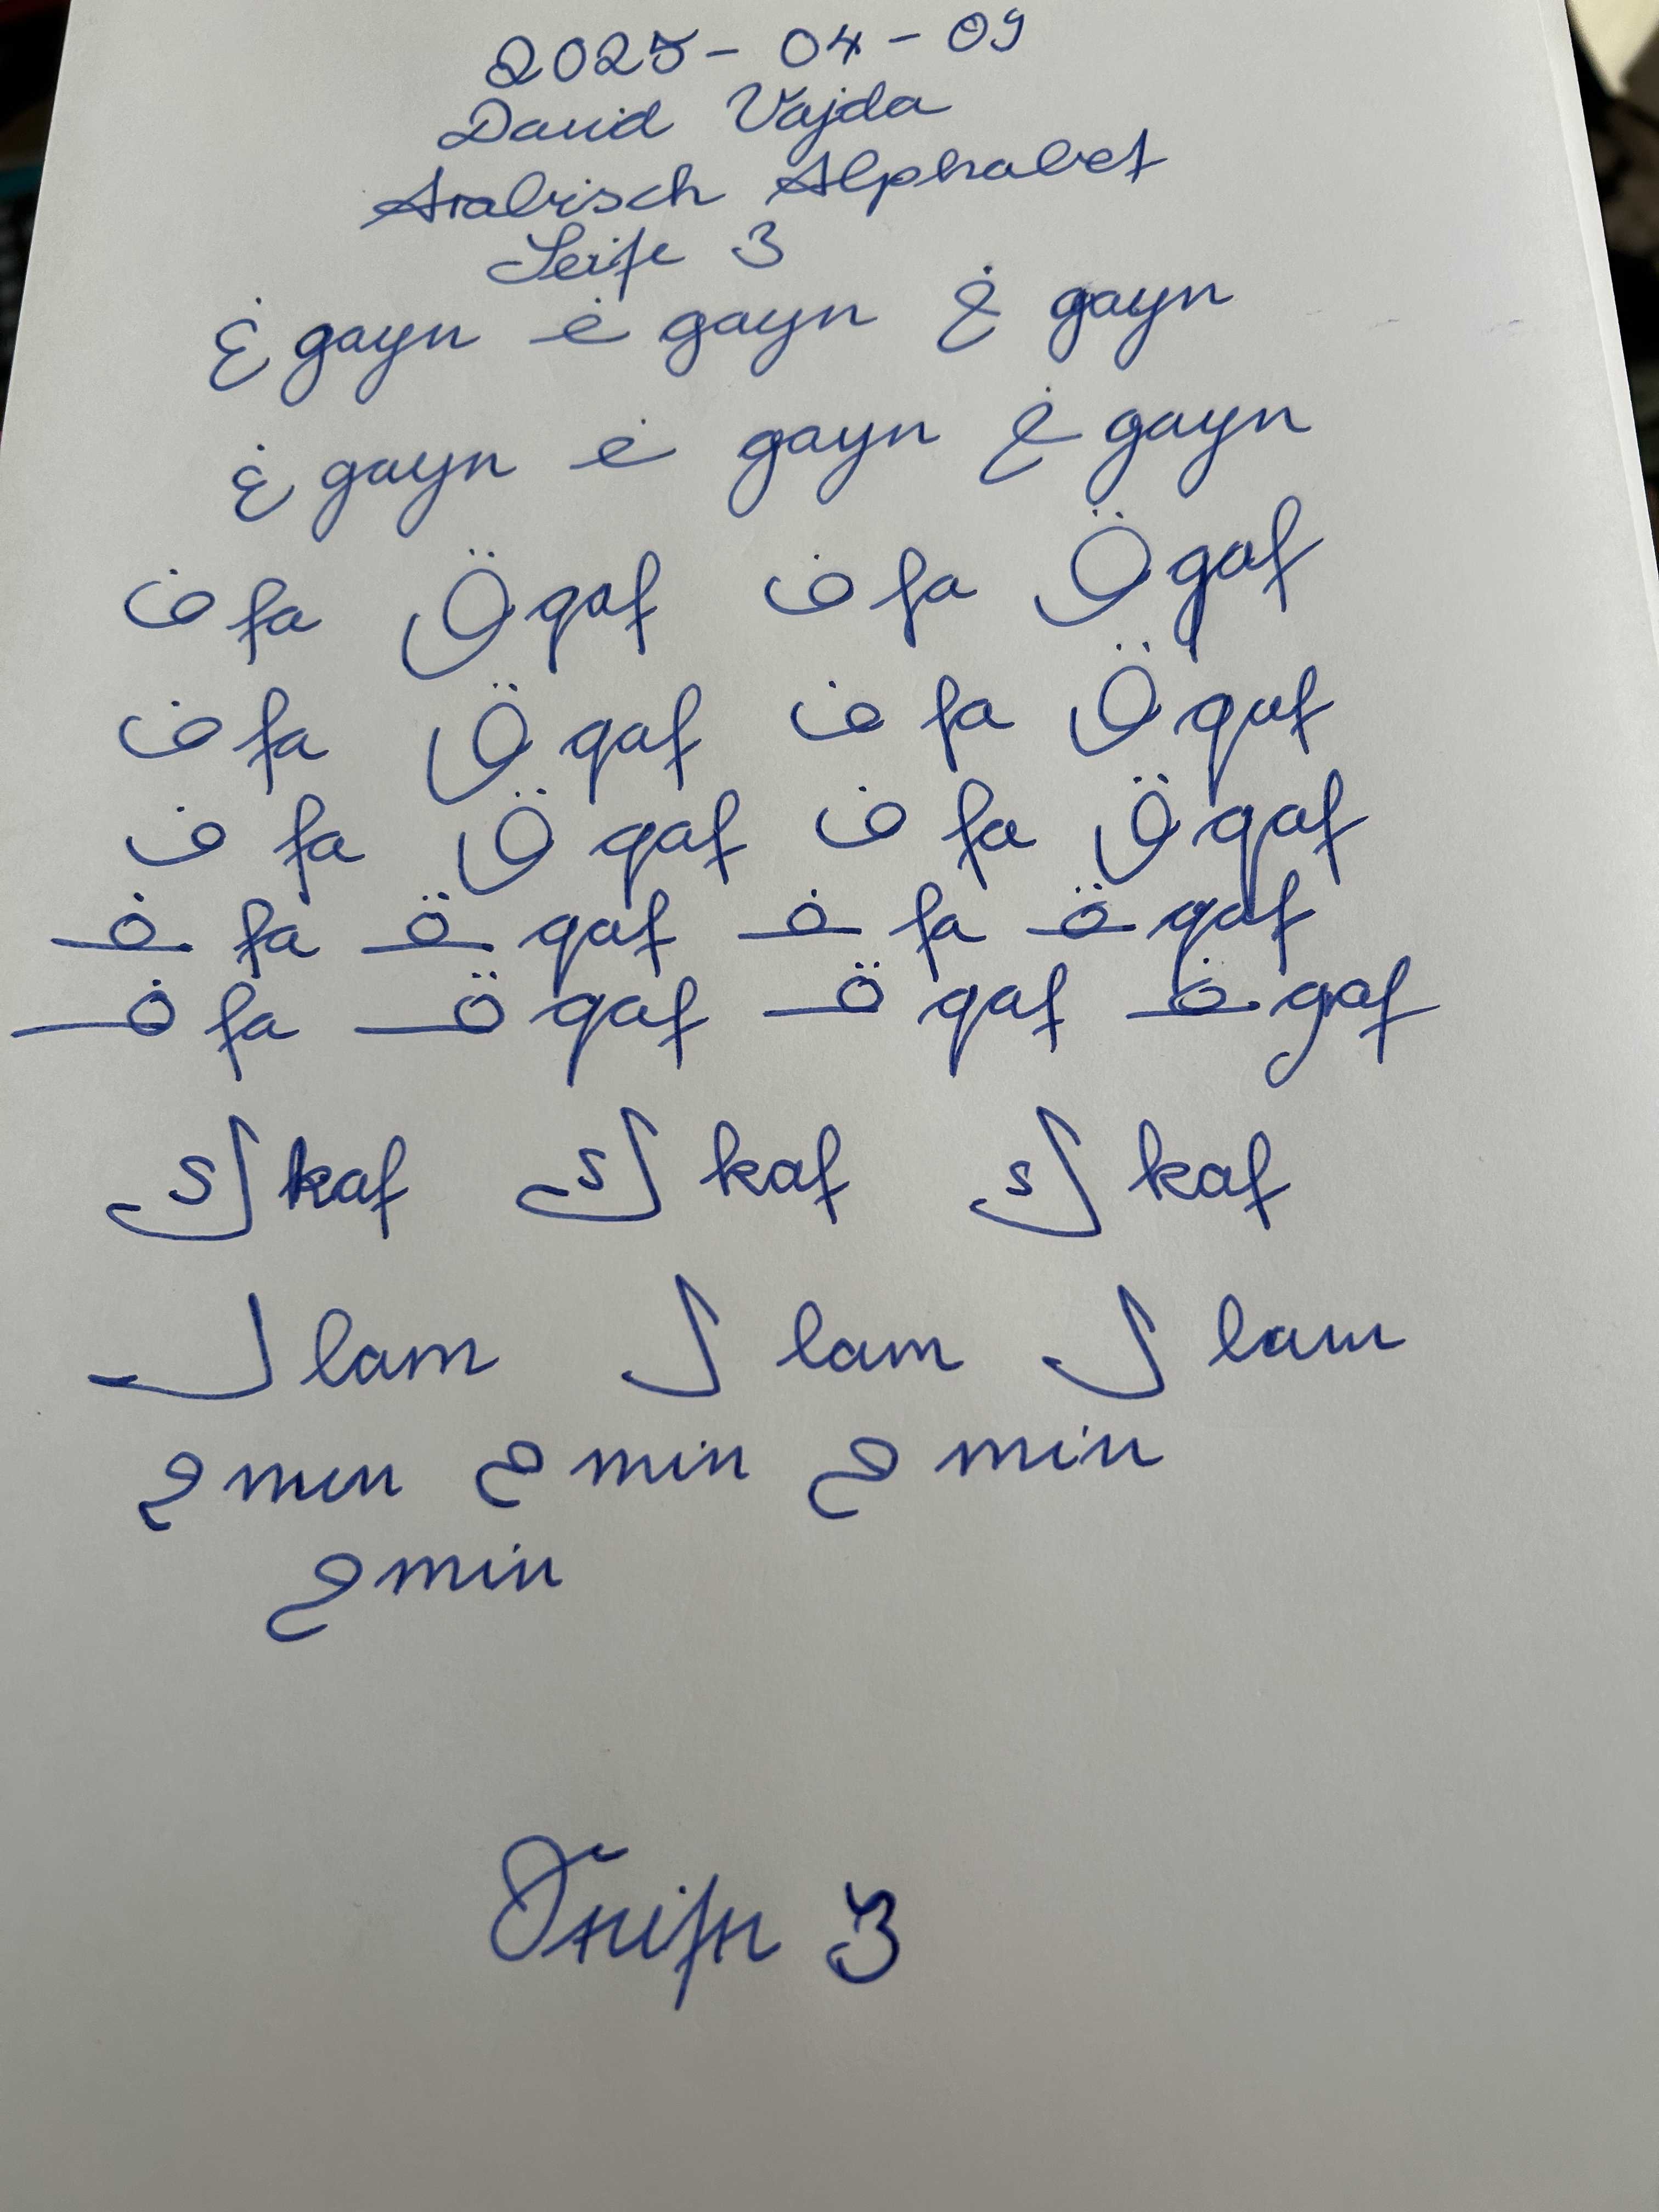 2025-04-09
David Vajda
Arabisch Alphabet
Seite 3
غ gayn غ gayn غ gayn
غ gayn غ gayn غ gayn
ف fa ق qaf ف fa ق qaf
ف fa ق qaf ف fa ق qaf
ف fa ق qaf ف fa ق qaf
ف fa ق qaf ف fa ق qaf
ف fa ق qaf ق qaf ف qaf
ك kaf ك kaf ك kaf
ل lam ل lam ل lam
م min م min م min
م min
Seite 3